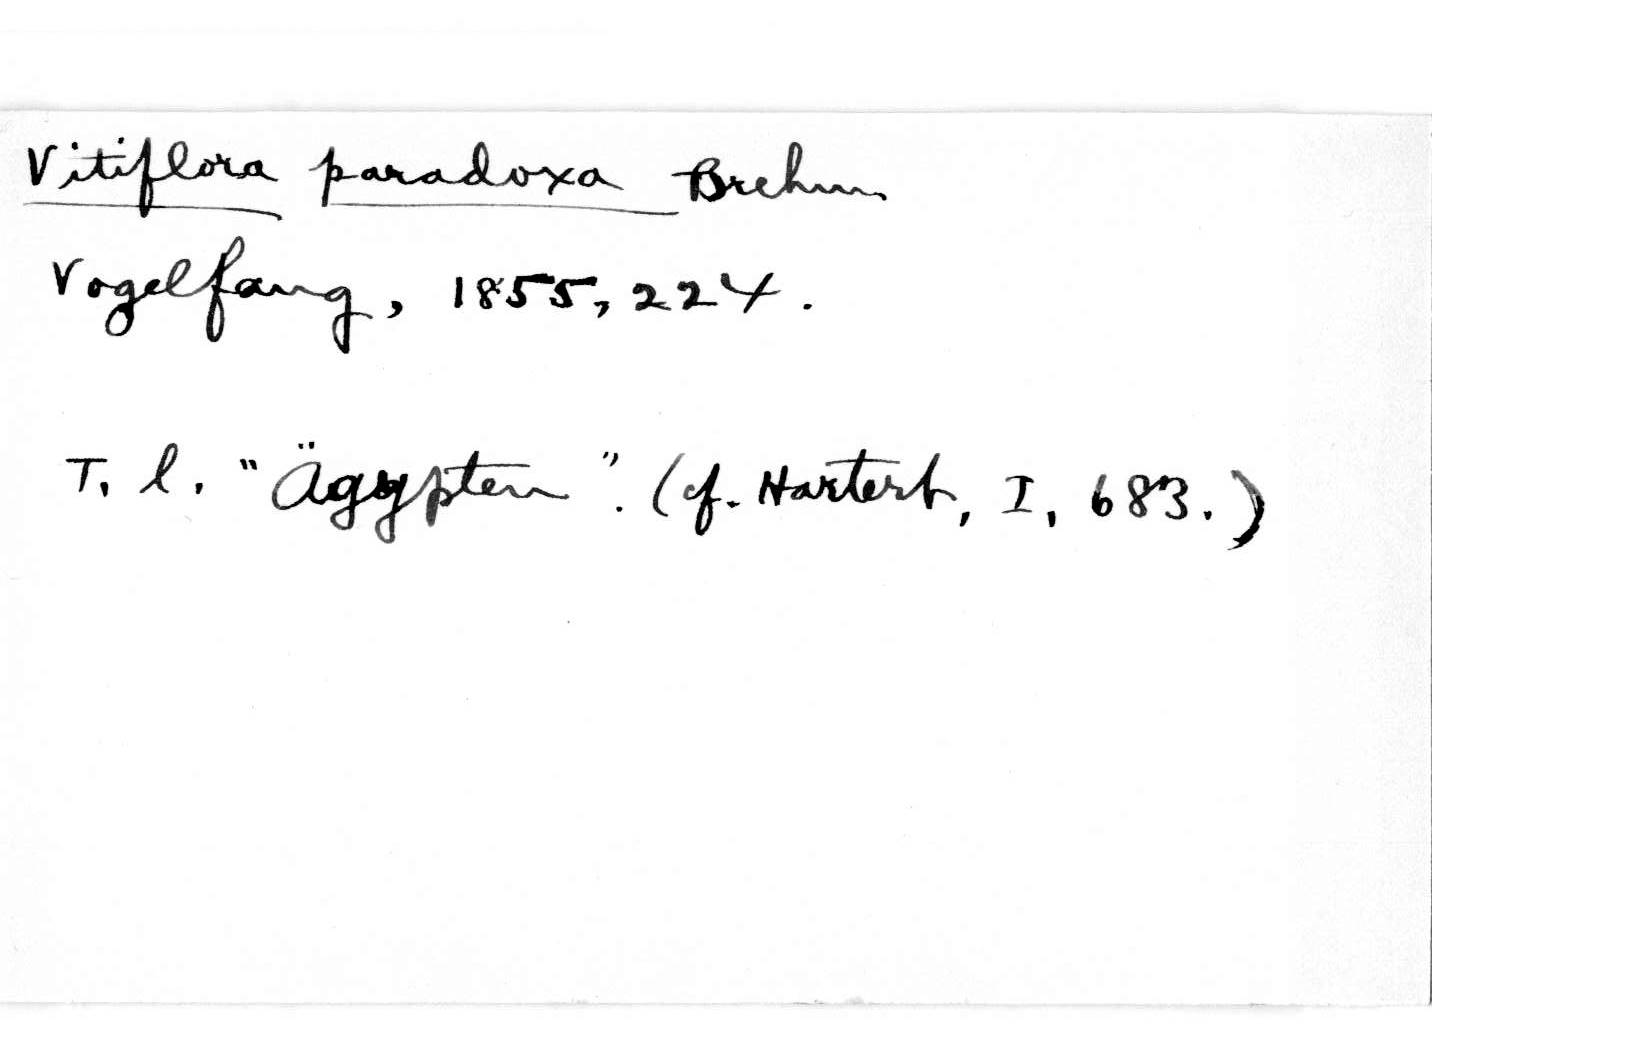 Vitiflora paradoxa Brehm
Vogelfang, 1855, 224.
T. l. "Ägypten". (cf. Hartert, I, 683.)